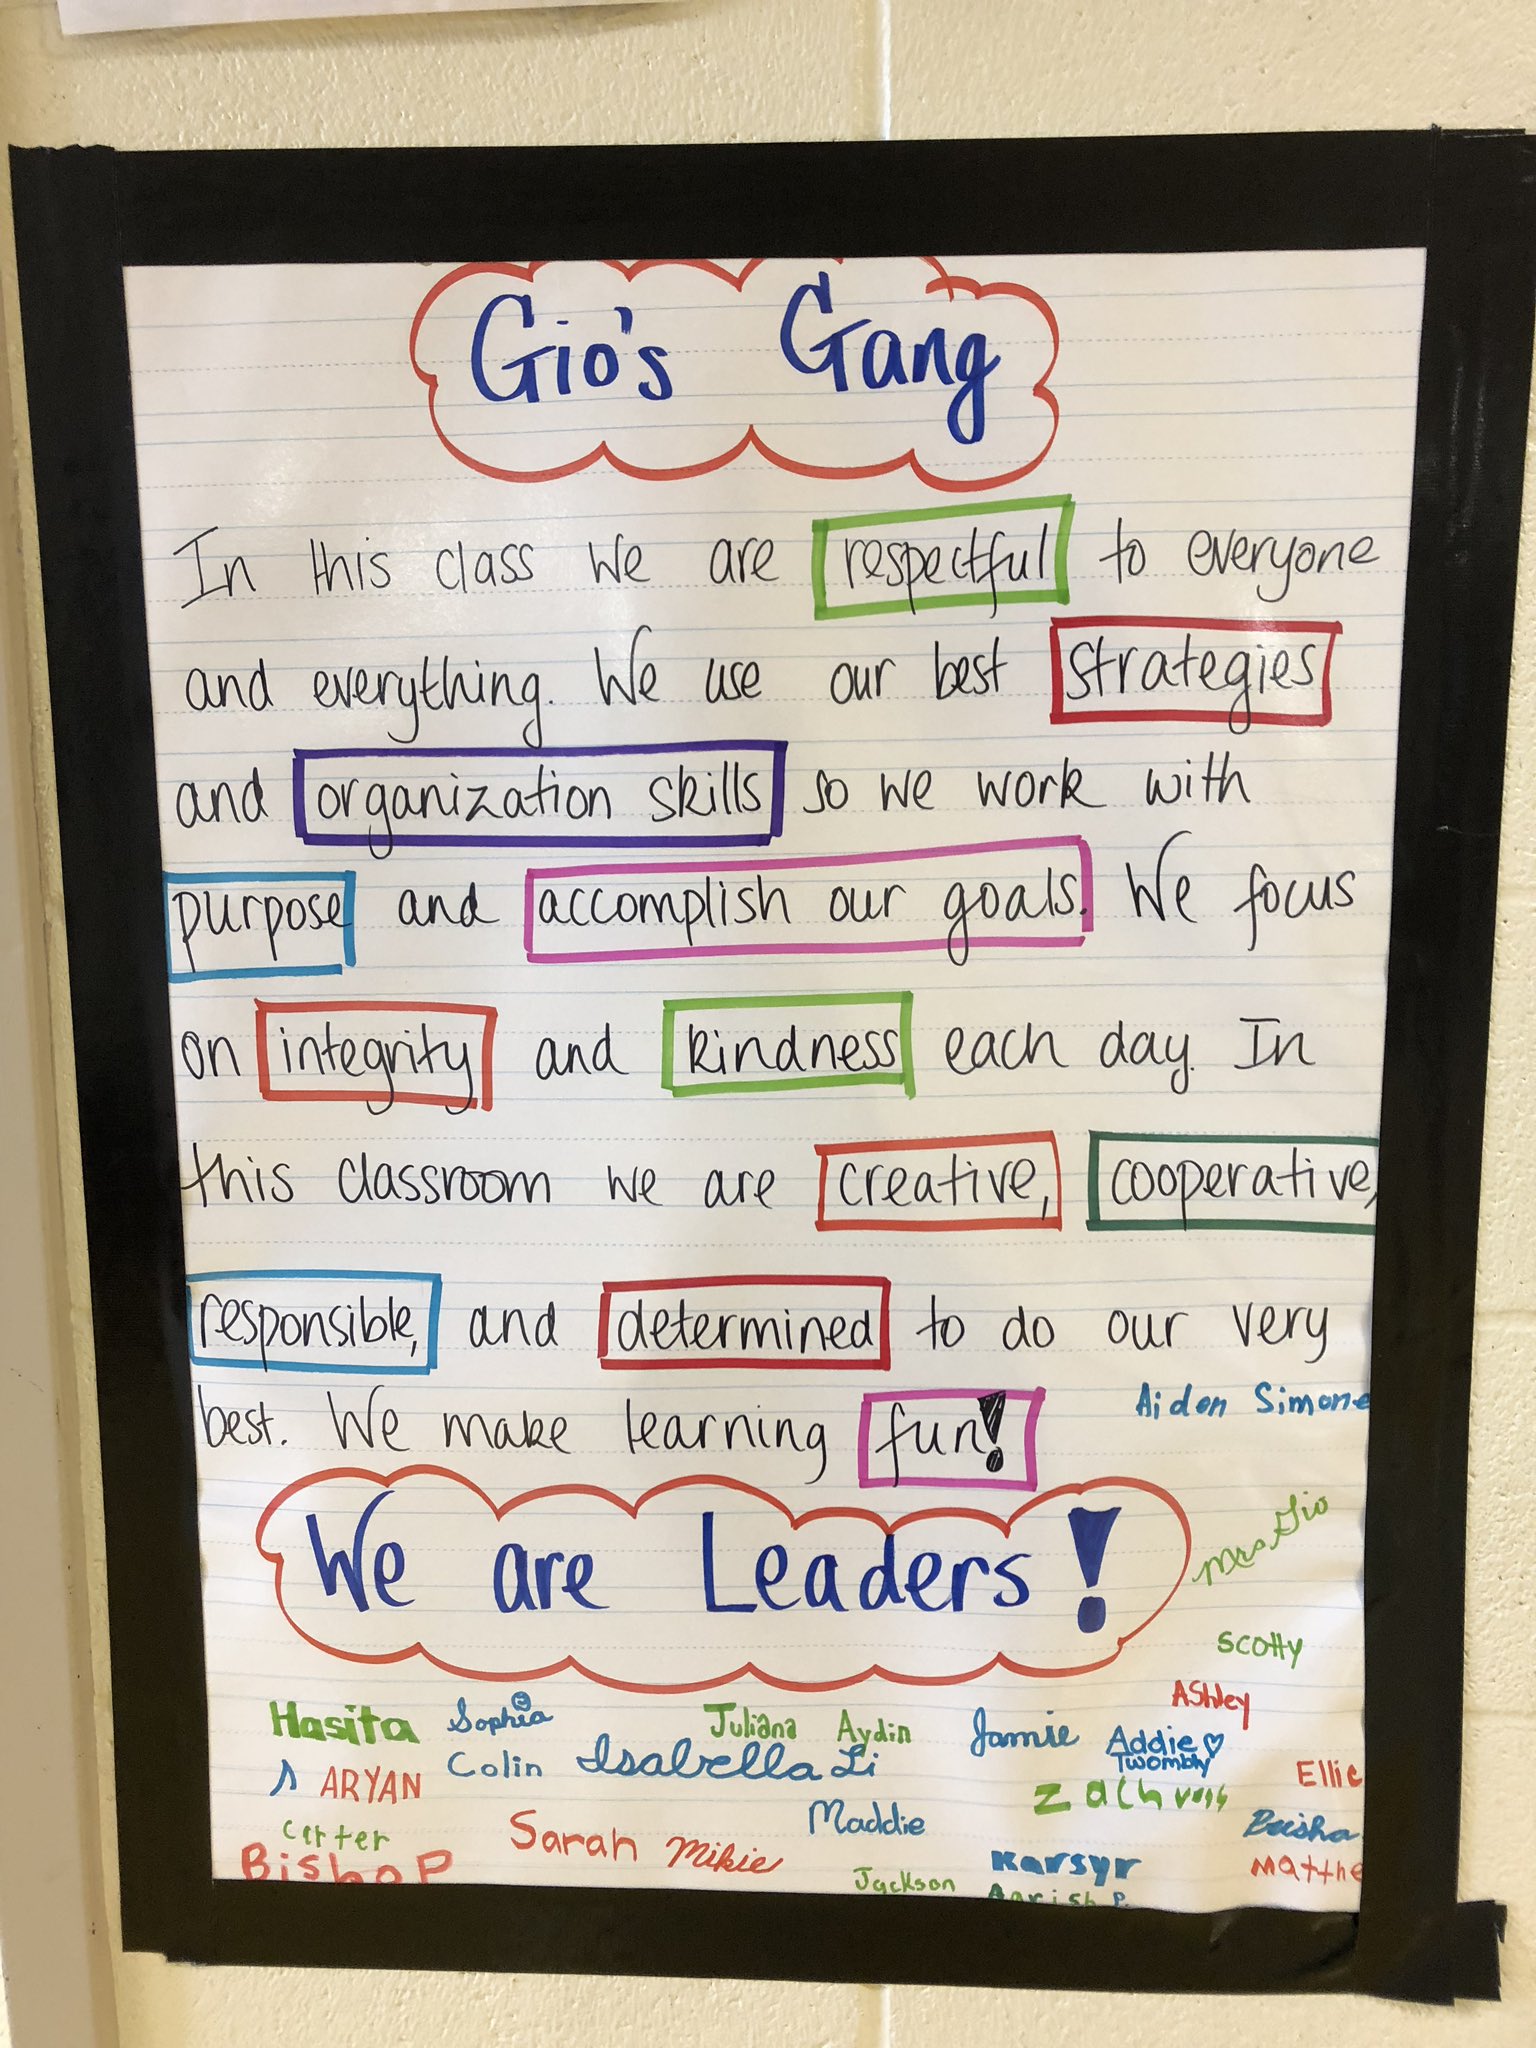 Gio's Gang
In this class we are respectful to everyone
and everything. We use our best strategies
and organization skills so we work with
purpose and accomplish our goals. We focus
on integrity and kindness each day. In
this classroom we are creative, cooperative,
responsible, and determined to do our very
best. We make learning fun!
Aiden Simone
We are Leaders!
Mrs. Gio
Scotty
Ashley
Hasita Sophia Juliana Aydin Jamie Addie
Twombly
Colin Isabella Li
ARYAN
Ellie
Zach
Carter
Maddie
Sarah Mikie
Bishop
Karsyr
Matthe
Jackson